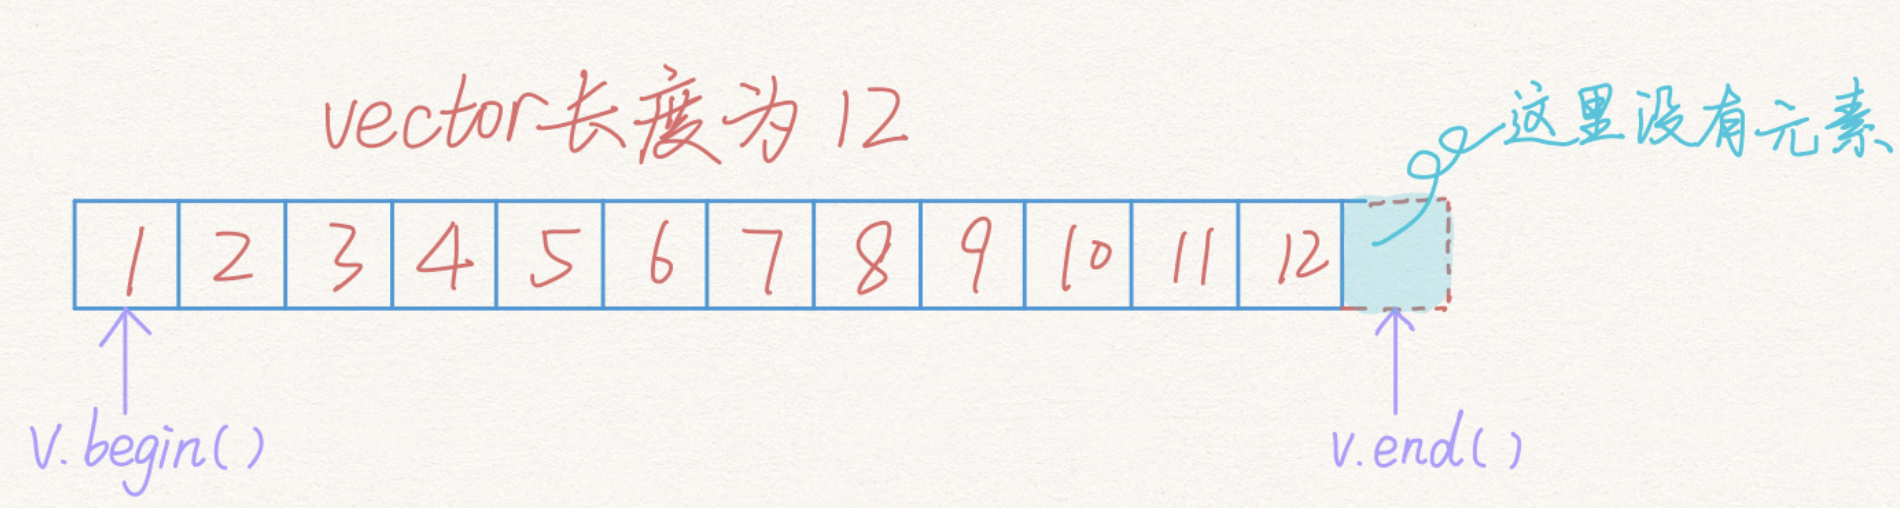 vector长度为12
这里没有元素
1 2 3 4 5 6 7 8 9 10 11 12
v.begin()
v.end()